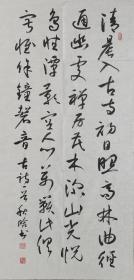 清晨入古寺初日照高林曲徑
通幽處禪房花木深山光悅
鳥性潭影空人心萬籟此俱
寂惟餘鐘磬音 古詩一首 秋
書